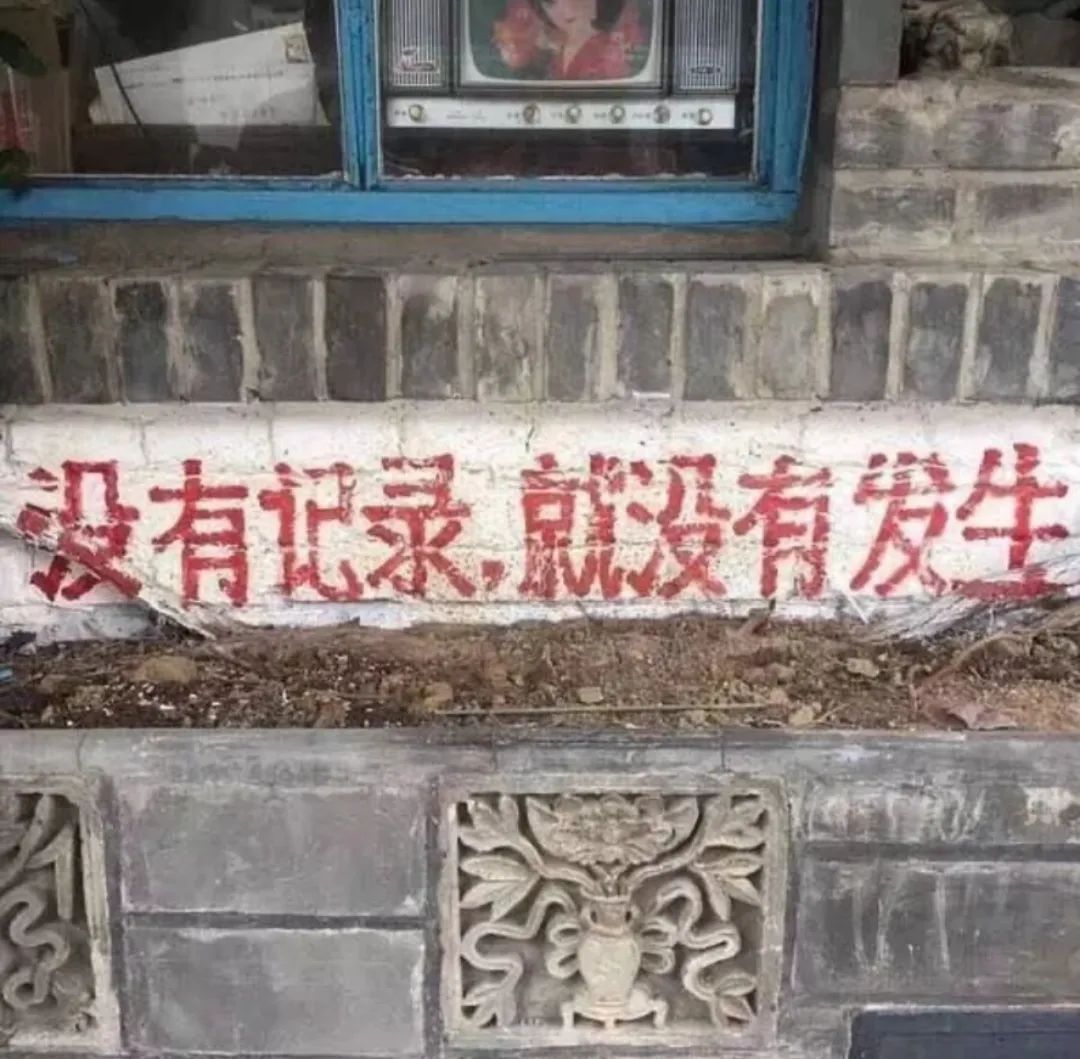 没有记录,就没有发生